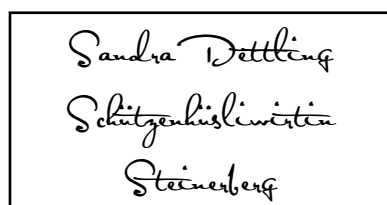 Sandra Dettling
Schützenhüsliwirtin
Steinerberg